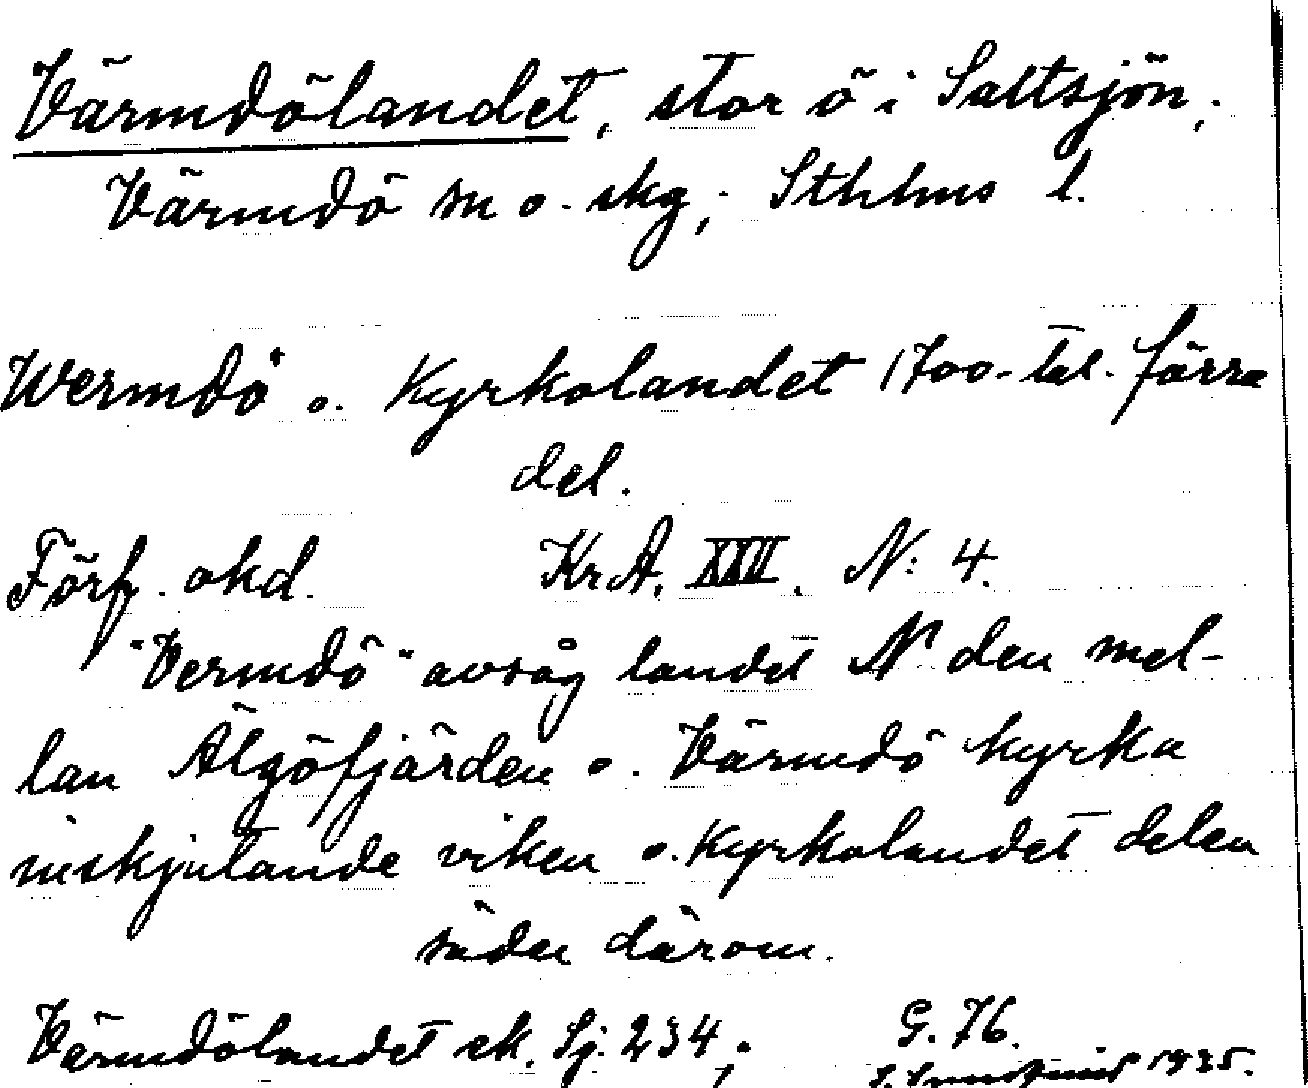 Värmdölandet, stor ö i Saltsjön,
Värmdö sn o. skg, Sthlms l.
Wermdö o. Kyrkolandet 1700-tal. förra
del.
Förf. okd. KrA. XXV. N: 4.
"Vermdö" avsåg landet N den mel-
lan Älgöfjärden o. Värmdö kyrka
inskjutande viken o. Kyrkolandet delen
söder därom.
Värmdölandet ek. Sj. 234, G. 76.
1935.